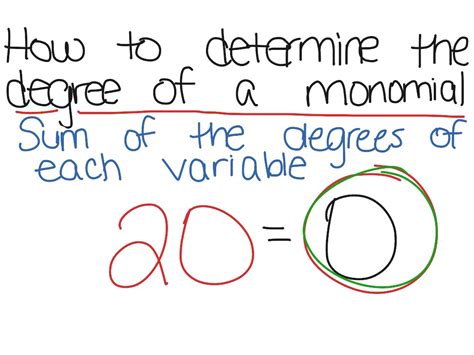 How to determine the
degree of a monomial
Sum of the degrees of
each variable
20 = 0